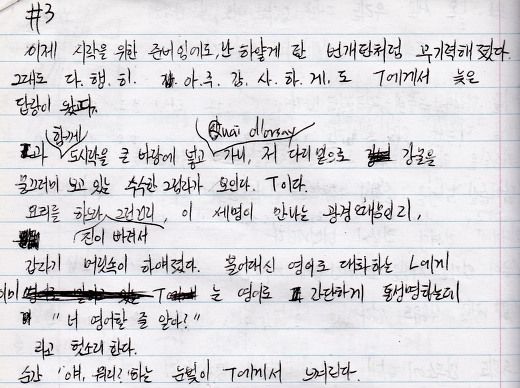 #3
이제 시작을 위한 준비임에도, 난 하얗게 탄 번개탄처럼 무기력해졌다.
그래도 다.행.히. 아.주.감.사.하.게.도 T에게서 늦은
답장이 왔다.
함께 Quai d'orsay
I과 도시락을 큰 바람에 넣고 가니, 저 다리 밑으로 강물을
물끄러미 보고 있는 수수한 그림자가 보인다. T이다.
요리를 하와, 그런건지, 이 세명이 만나는 광경 때문인지,
진이 빠져서
갑자기 머릿속이 하얘졌다. 불어대신 영어로 대화하는 L에게
이미 T는 영어로 간단하게 통성명하는데
"너 영어할 줄 알아?"
라고 헛소리 한다.
순간 '얘, 뭐지?'하는 눈빛이 T에게서 느껴진다.